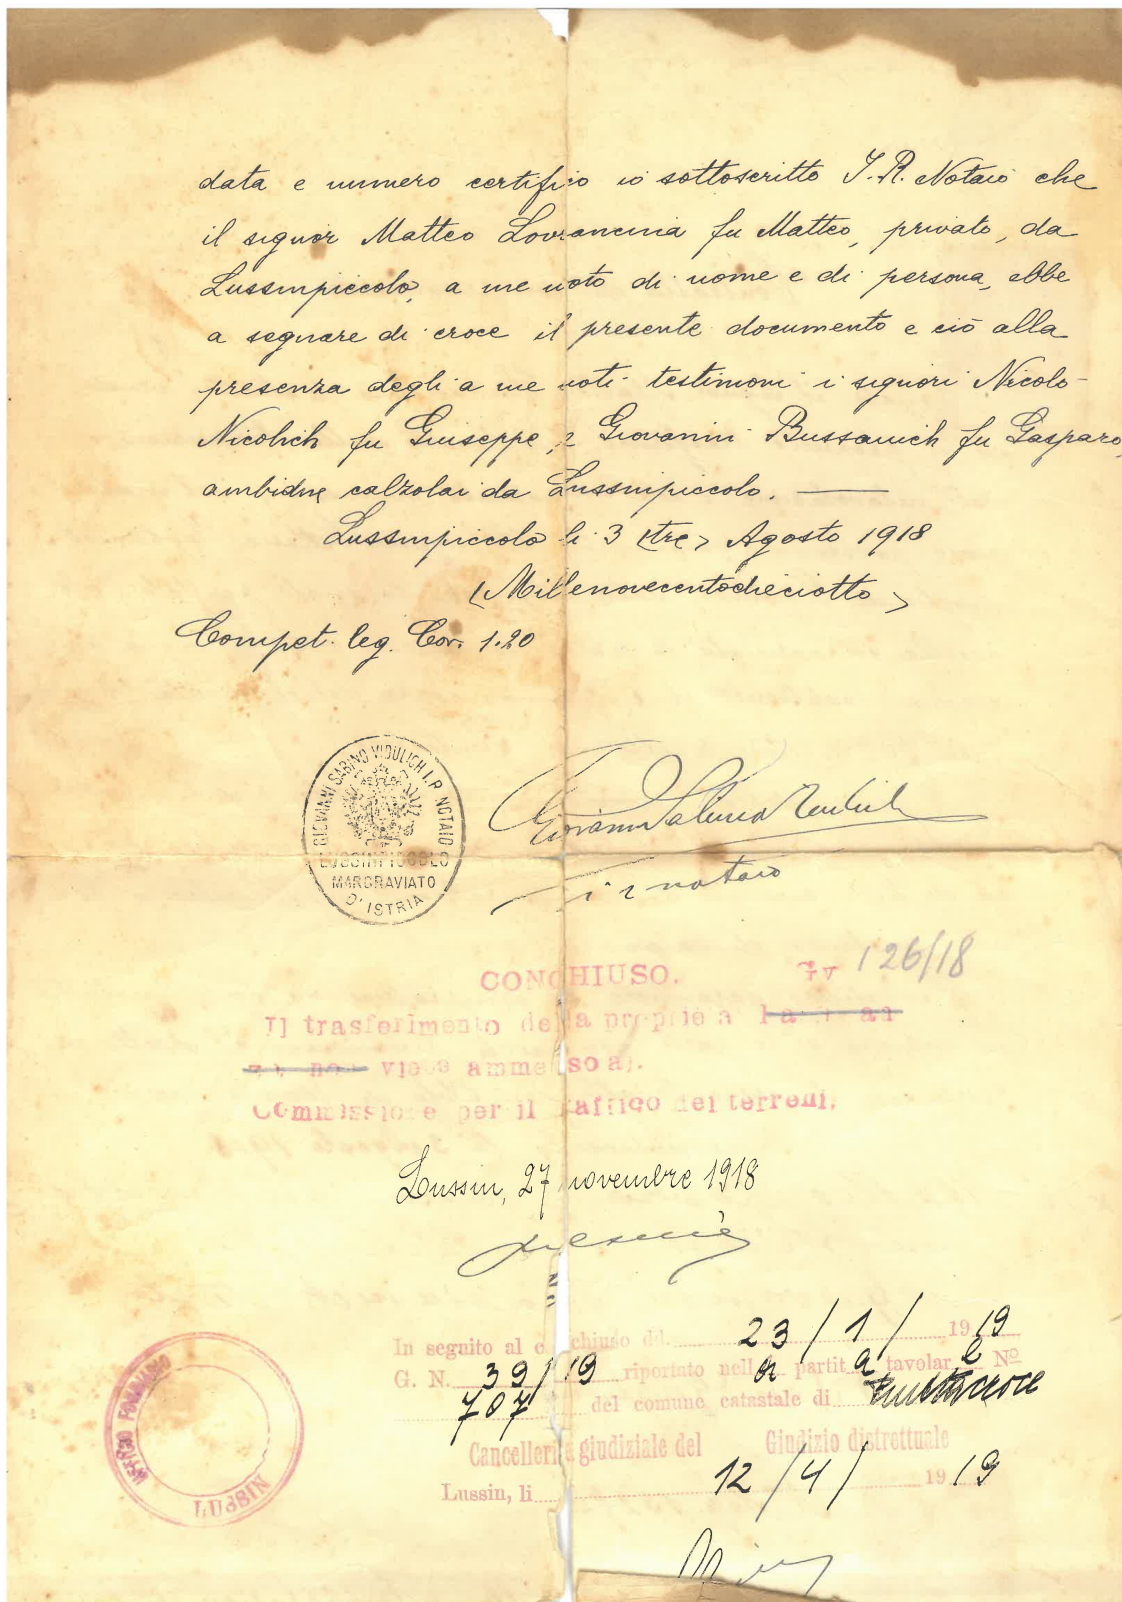 data e numero certifico io sottoscritto I. R. Notaio che
il signor Matteo Lovrancina fu Matteo, privato, da
Lussinpiccolo, a me noto di nome e di persona, ebbe
a segnare di croce il presente documento e ciò alla
presenza degli a me noti testimoni i signori Nicolo-
Nicolich fu Giuseppe, e Giovanni Bussanich fu Gasparo,
ambidue calzolai da Lussinpiccolo. —
Lussinpiccolo li 3 (tre) Agosto 1918
(Millenovecentodieciotto)
Compet. leg. Cor. 1.20
GIOVANNI SABINO VIDULICH I.R. NOTAIO
LUSSINPICCOLO
MARGRAVIATO
D'ISTRIA
Giovanni Sabino Vidulich
i r notaio
CONCHIUSO. Gv 126/18
Il trasferimento della proprie a
viene ammesso a).
Commissione per il traffico dei terreni.
Lussin, 27 novembre 1918
In seguito al conchiuso dd. 23/1/1919
G. N. 39/19 riportato nella partita tavolare Nº
707 del comune catastale di
Cancelleria giudiziale del Giudizio distrettuale
Lussin, li 12/4/1919
UFFICIO FONDIARIO
LUSSIN